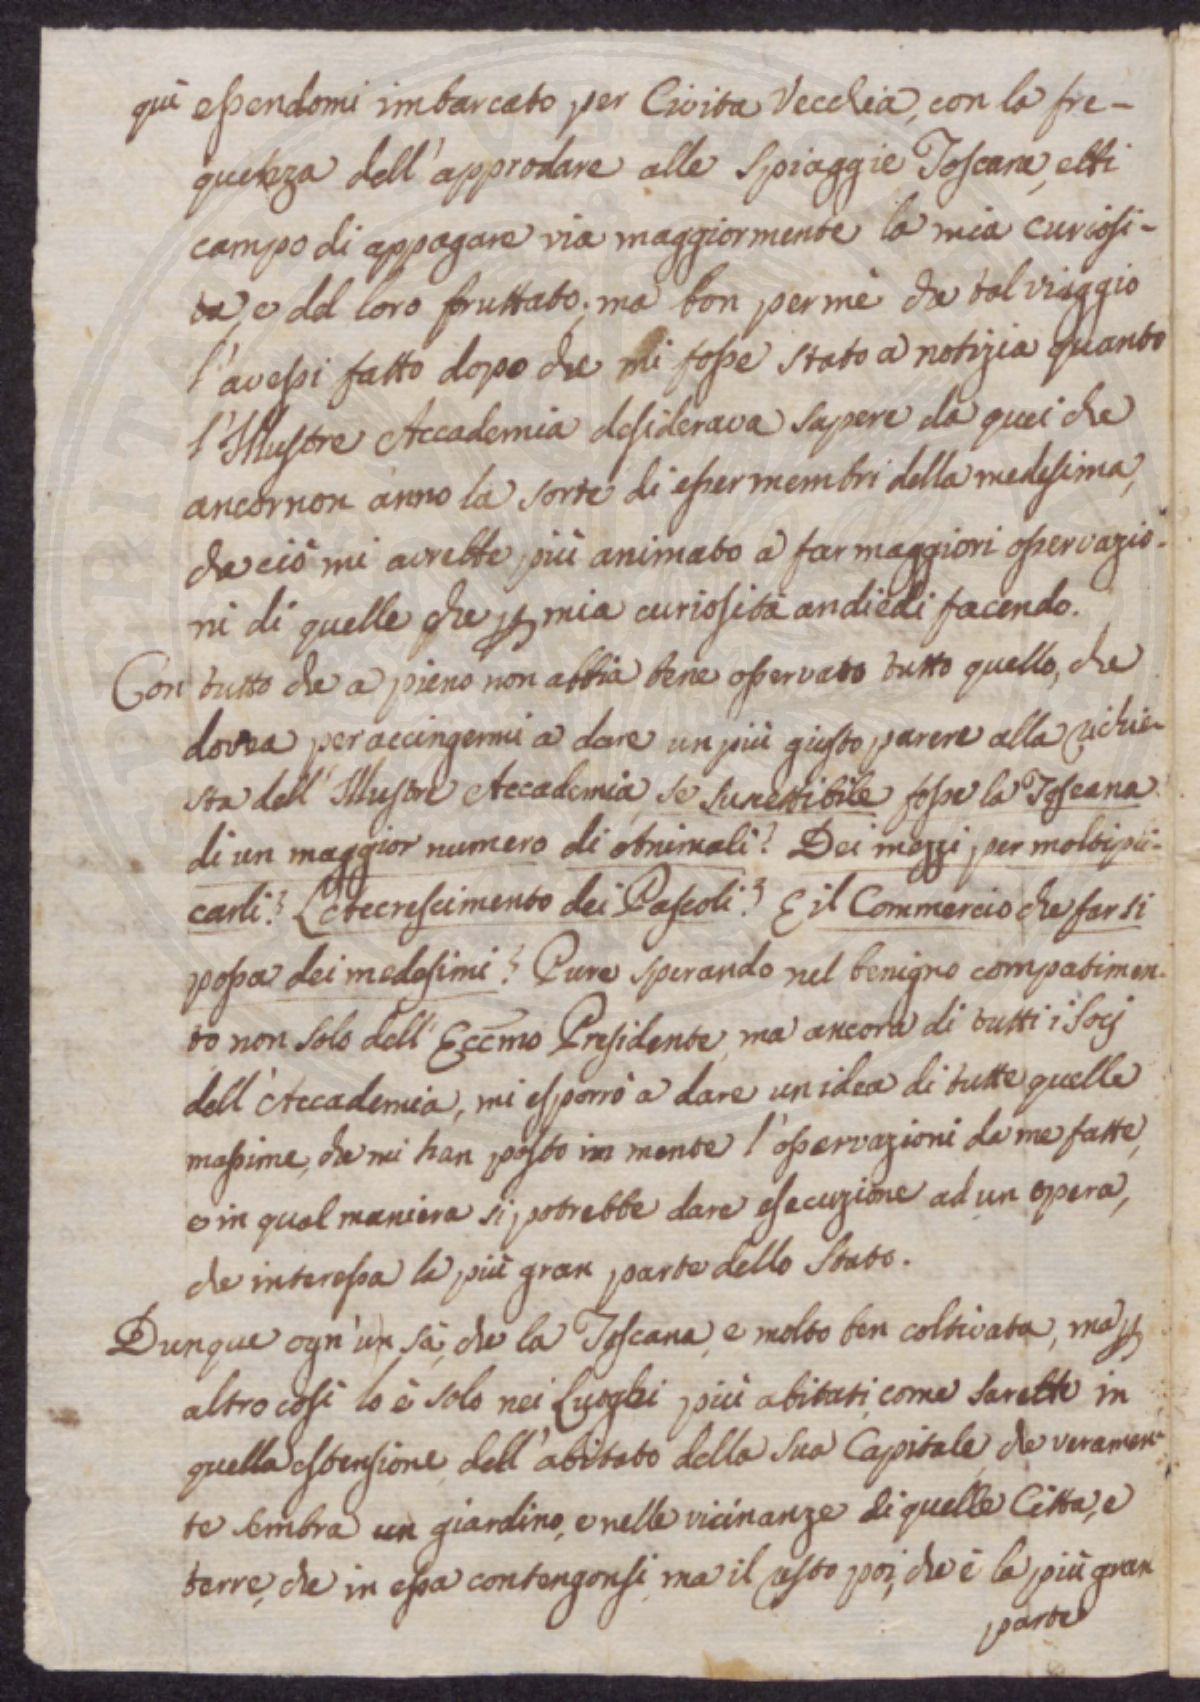 qui essendomi imbarcato per Civita Vecchia, con la fre-
quenza dell'approdare alle Spiaggie Toscana, ebbi
campo di appagare via maggiormente la mia curiosi-
ta, e del loro fruttato; ma bon per me che tal viaggio
l'avessi fatto dopo che mi fosse stato a notizia quanto
l'Illustre Accademia desiderava sapere da quei che
ancor non anno la sorte di esser membri della medesima,
che ciò mi avrebbe più animato a far maggiori osservazio-
ni di quelle che p mia curiosità andiedi facendo.
Con tutto che a pieno non abbia bene osservato tutto quello, che
dovea per accingermi a dare un più giusto parere alla richie-
sta dell'Illustre Accademia, se suscettibile fosse la Toscana
di un maggior numero di Animali? Dei mezzi per moltipli-
carli? L'Accrescimento dei Pascoli? E il Commercio che far si
possa dei medesimi? Pure sperando nel benigno compatimen-
to non solo dell'Eccmo Presidente, ma ancora di tutti i Socj
dell'Accademia, mi esporrò a dare un idea di tutte quelle
massime, che mi han posto in mente l'osservazioni da me fatte,
e in qual maniera si potrebbe dare esecuzione ad un opera,
che interessa la più gran parte dello Stato.
Dunque ogn'un sà, che la Toscana, e molto ben coltivata, ma p
altro così lo è solo nei Luoghi più abitati, come sarebbe in
quella estensione dell'abitato della sua Capitale che veramen-
te sembra un giardino, e nelle vicinanze di quelle Città, e
terre, che in essa contengonsi, ma il resto poi, che è la più gran
parte